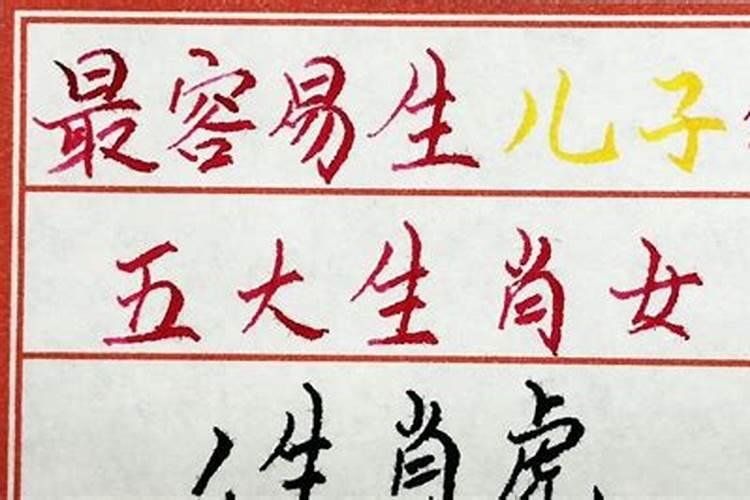 最容易生儿子
五大生肖女
1生肖虎